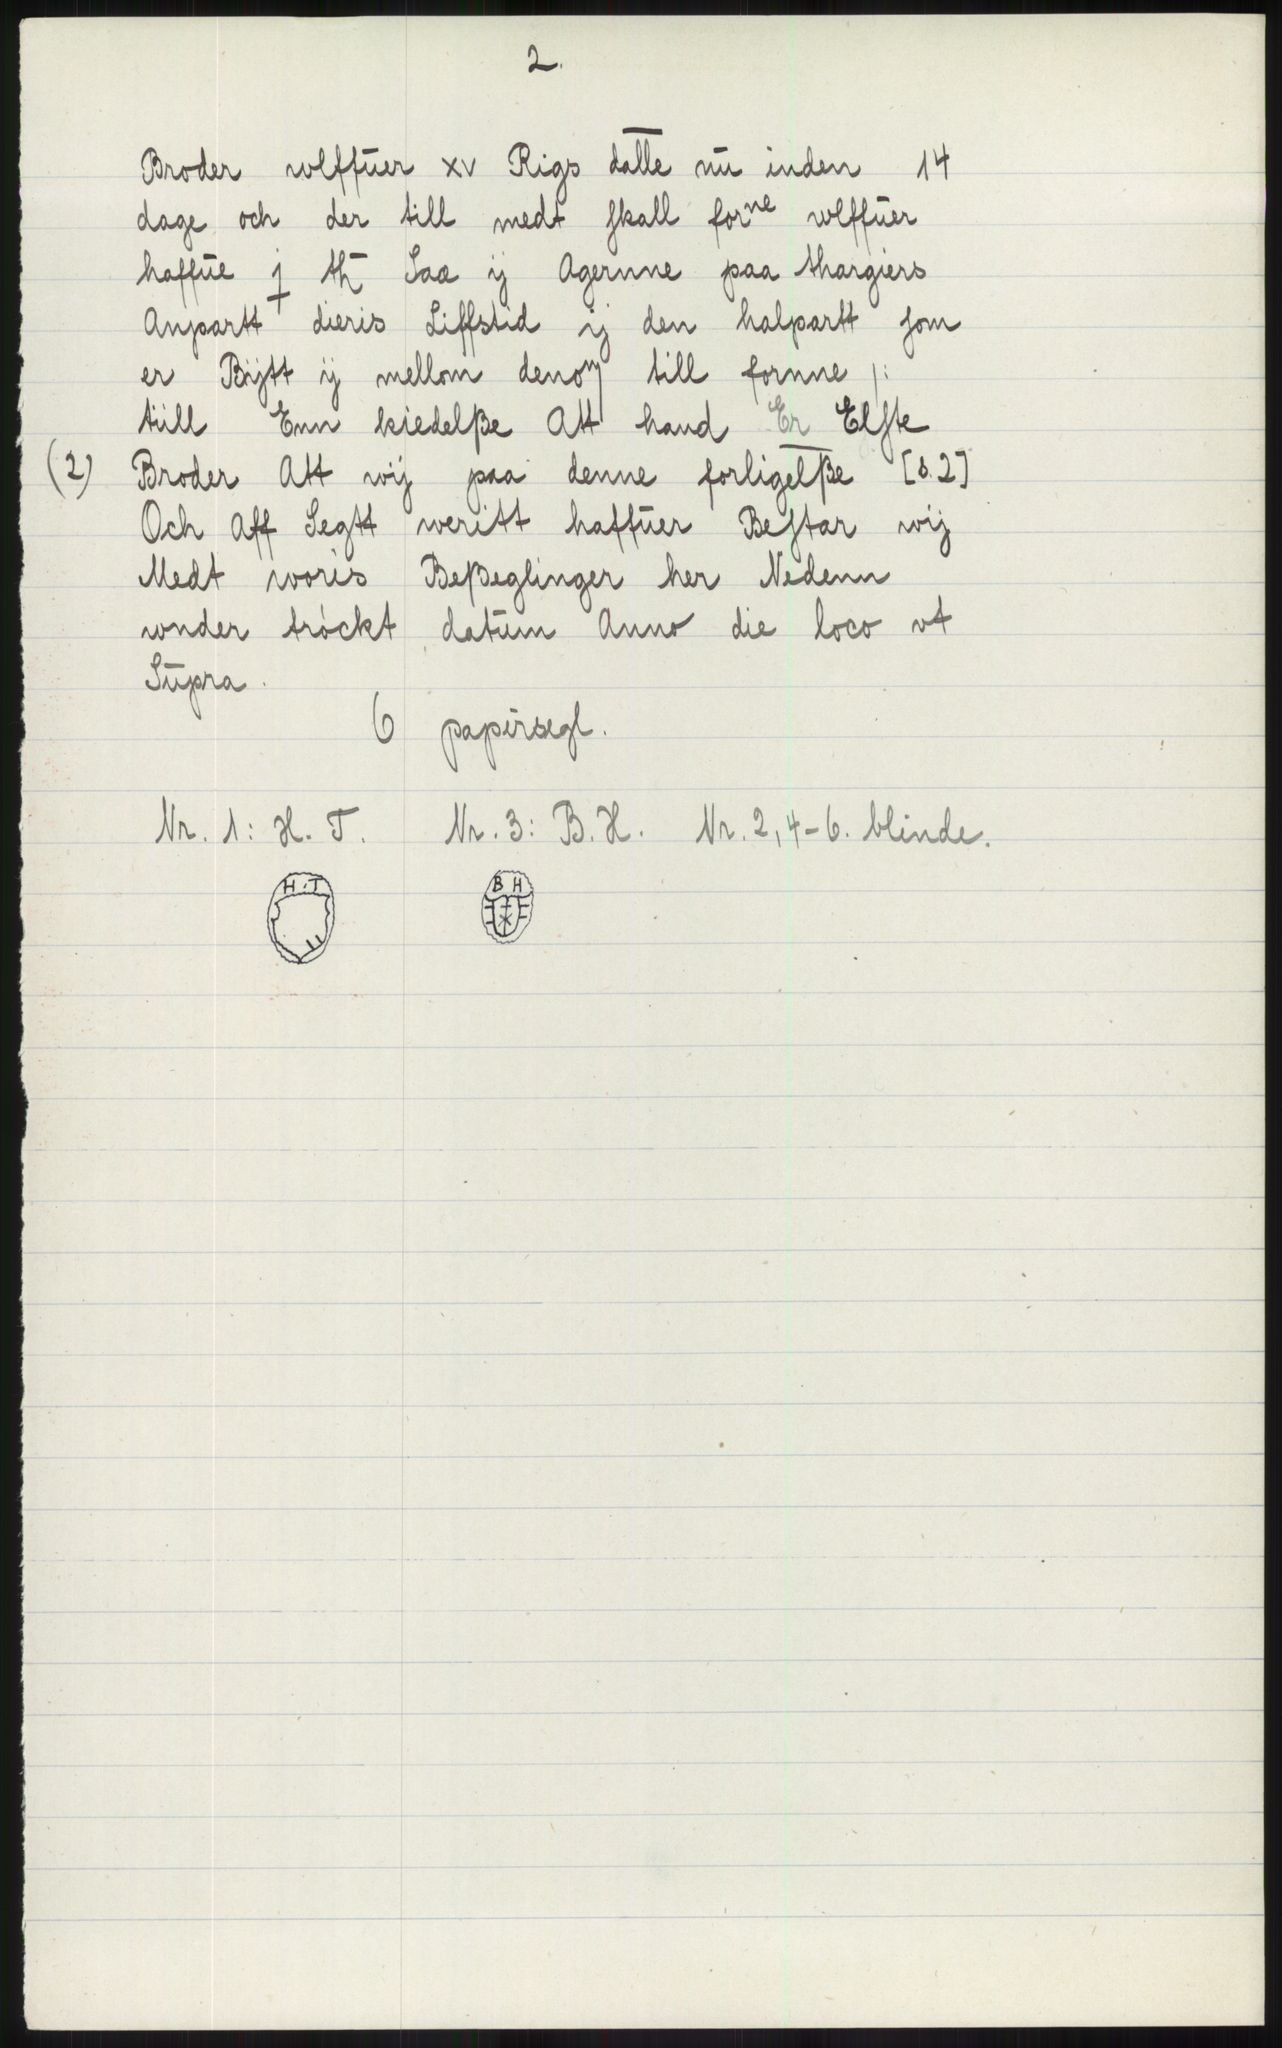 2.
Broder wlffuer xv Rigs dalle nu inden 14
dage och der till medt skall forne wlffuer
haffue j th Saa ij Agernne paa thargiers
Anpartt dieris Liffstid ij den halpartt som
er Bijtt ij mellom denom till fornne /:
till Enn kiedelße Att hand Er Elste
(2) Broder Att wij paa denne forligelße [s. 2]
Och Aff Segtt weritt haffuer Bestar wij
Medt woris Beßeglinger her Nedenn
wnder tróckt datum Anno die loco vt
Supra.
6 papirsegl.
Nr. 1: H. T. Nr. 3: B. H. Nr. 2, 4-6. blinde.
H. T B H